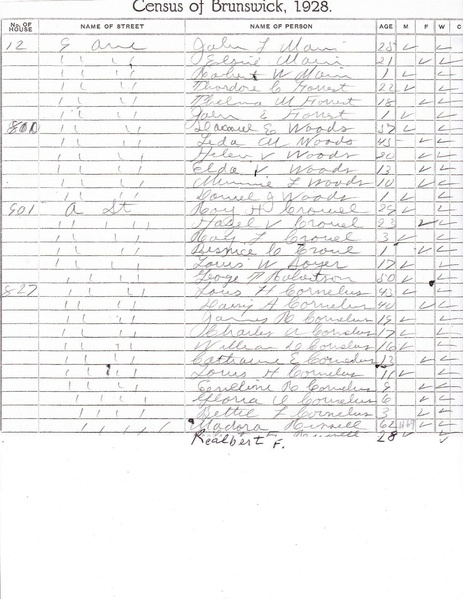 Census of Brunswick, 1928.
No. OF HOUSE NAME OF STREET NAME OF PERSON AGE M F W C
12 E Ave John L Main 25 ✓ ✓
" " " " Main 21 ✓ ✓
" " " " Robert W Main 1 ✓ ✓
" " " " Theodore C Forrest 22 ✓ ✓
" " " " Thelma M Forrest 18 ✓ ✓
" " " " John E Forrest 1 ✓ ✓
800 " " " " E Woods 57 ✓ ✓
" " " " Leda M Woods 45 ✓ ✓
" " " " Helen V Woods 20 ✓ ✓
" " " " Elda V Woods 13 ✓ ✓
" " " " Minnie L Woods 10 ✓ ✓
" " " " Daniel J Woods 1 ✓ ✓
801 A St Roy H Crouel 29 ✓ ✓
" " " " Hazel V Crouel 23 ✓ ✓
" " " " Roy L Crouel 3 ✓ ✓
" " " " Bernice C Crouel 1 ✓ ✓
" " " " Louis W 17 ✓ ✓
" " " " Robertson 50 ✓ ✓
827 " " " " Louis H Cornelius 43 ✓ ✓
" " " " Daisy A Cornelius 40 ✓ ✓
" " " " James R Cornelius 19 ✓ ✓
" " " " Charles A Cornelius 17 ✓ ✓
" " " " William D Cornelius 16 ✓ ✓
" " " " Catharine E Cornelius 13 ✓ ✓
" " " " Louis H Cornelius 11 ✓ ✓
" " " " Emeline R Cornelius 9 ✓ ✓
" " " " Gloria V Cornelius 6 ✓ ✓
" " " " Bettie L Cornelius 3 ✓ ✓
" " " " Madora 62 ✓ ✓
Realpert F. 28 ✓ ✓